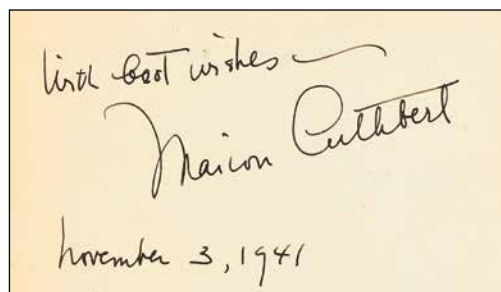 With best wishes —
Marion Cuthbert
November 3, 1941